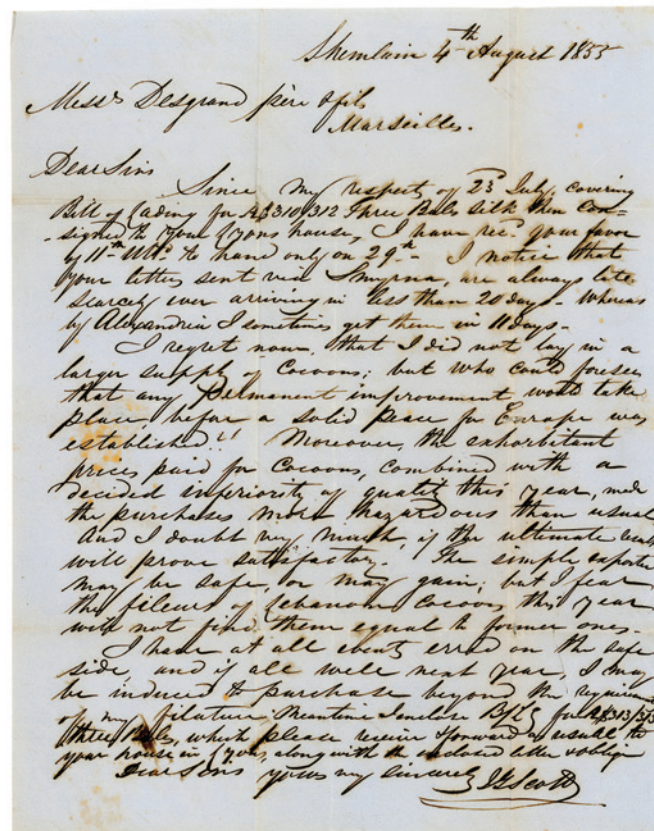 Shemlain 4th August 1855
Mess.rs Desgrand père & fils
Marseilles.
Dear Sirs
Since my respects of 23d July, covering
Bill of Lading for 310/312 Three Bales Silk then con-
-signed to your Lyons house, I have rec.d your favor
of 11th Ult.o to hand only on 29th - I notice that
your letters sent via Smyrna, are always late
scarcely ever arriving in less than 20 days - whereas
by Alexandria I sometimes get them in 11 days -
I regret now, that I did not lay in a
larger supply of Cocoons; but who could foresee
that any permanent improvement would take
place, before a solid peace for Europe was
established!! Moreover, the exhorbitant
prices paid for Cocoons, combined with a
decided inferiority of quality this year, made
the purchases more hazardous than usual
And I doubt very much, if the ultimate
will prove satisfactory. The simple exporter
may be safe, or may gain; but I fear
the fileurs of Lebanon Cocoons this year
will not find them equal to former ones -
I have at all events erred on the safe
side, and if all well next year, I may
be induced to purchase beyond the
of my filature; Meantime I enclose B/L for 313/315
three Bales, which please receive & forward as usual to
your house in Lyons, along with the enclosed letter & oblige
Dear Sirs yours very sincerely Scott